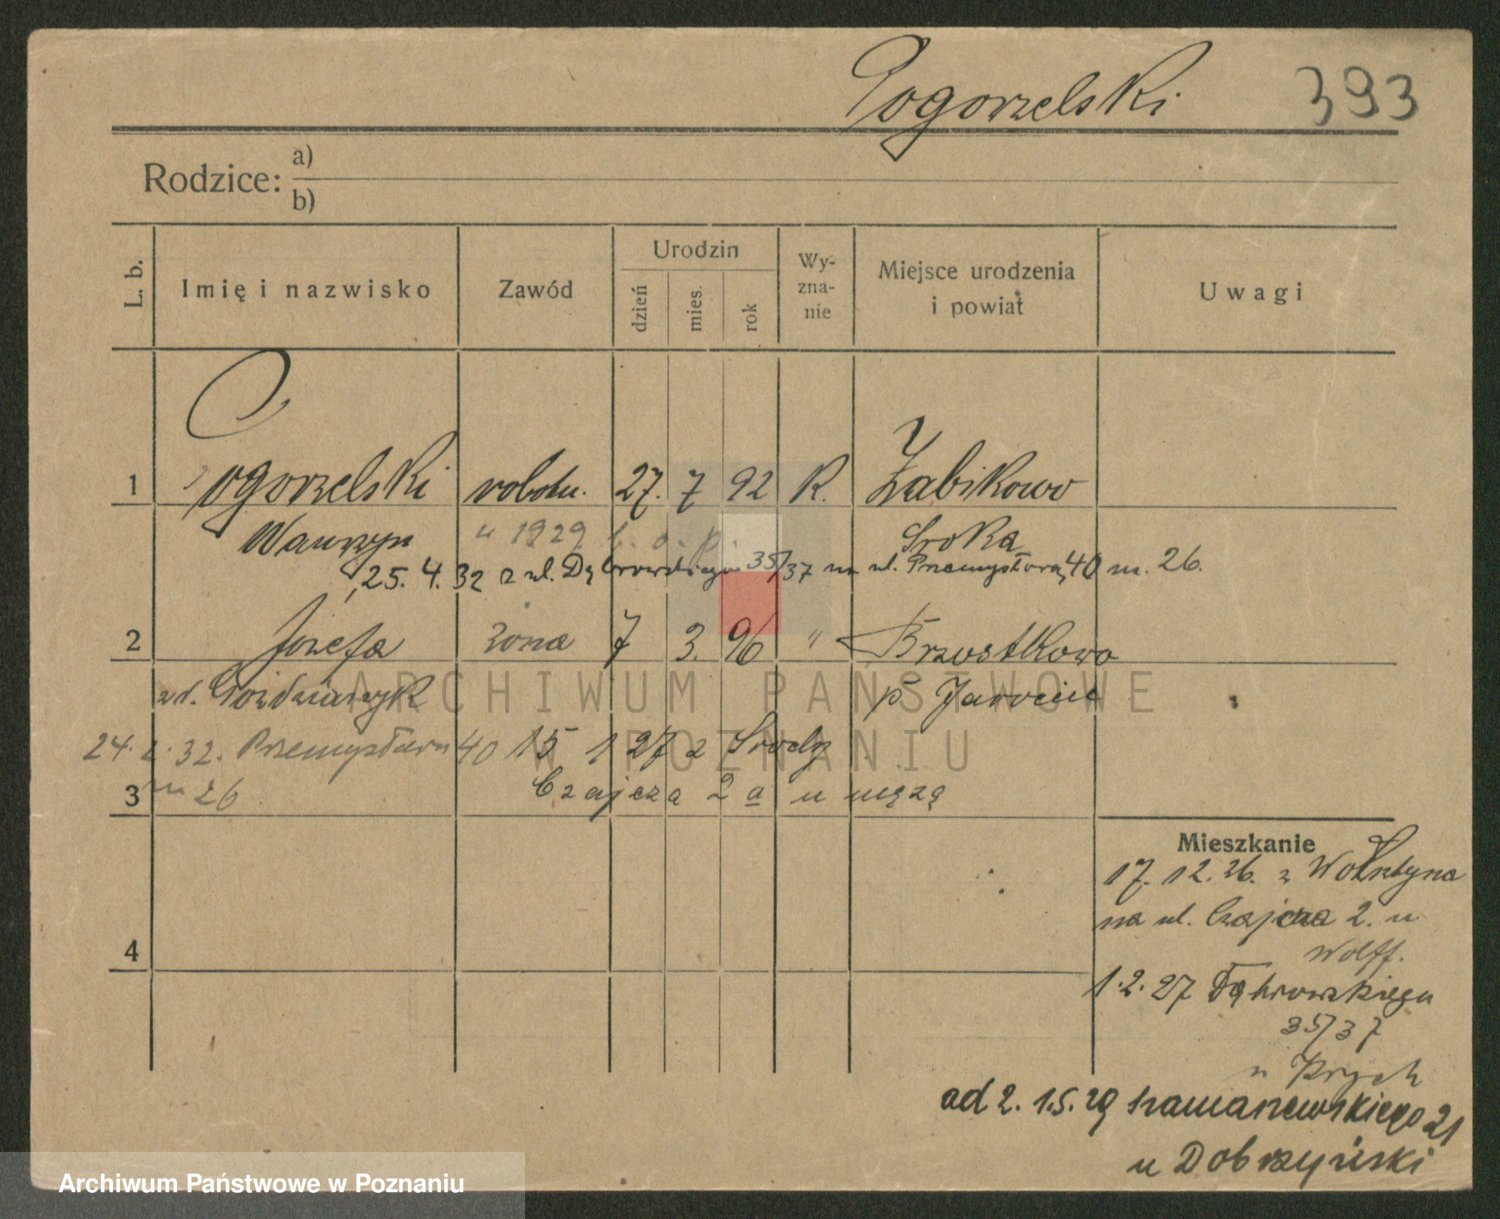 Pogorzelski 393
Rodzice: a)
b)
L. b. Imię i nazwisko Zawód Urodzin dzień mies. rok Wy-zna-nie Miejsce urodzenia i powiat Uwagi
1 Pogorzelski robotn. 27. 7 92 R. Żabikowo
Wawrzyn u 1929 b. o. p. Sroka
25. 4. 32 z ul. Dąbrowskiego 35/37 na ul. Przemysłową 40 m. 26.
2 Józefa żona 7 3. 96 " Brzostkowo
zd. Goździaszyk p Jarocin
ARCHIWUM PAŃSTWOWE
24. 2. 32. Przemysłowa 40 15 1 27 z Środy
W POZNANIU
3 m 26 Czajcza 2 a u męża
Mieszkanie
17. 12. 26. z Wolsztyna
na ul. Czajcza 2. u
Wolff.
4
1. 2. 27 Dąbrowskiego
35/37
u Krych
ad 2. 1.5.29 Szamarzewskiego 21
u Dobrzyński
Archiwum Państwowe w Poznaniu